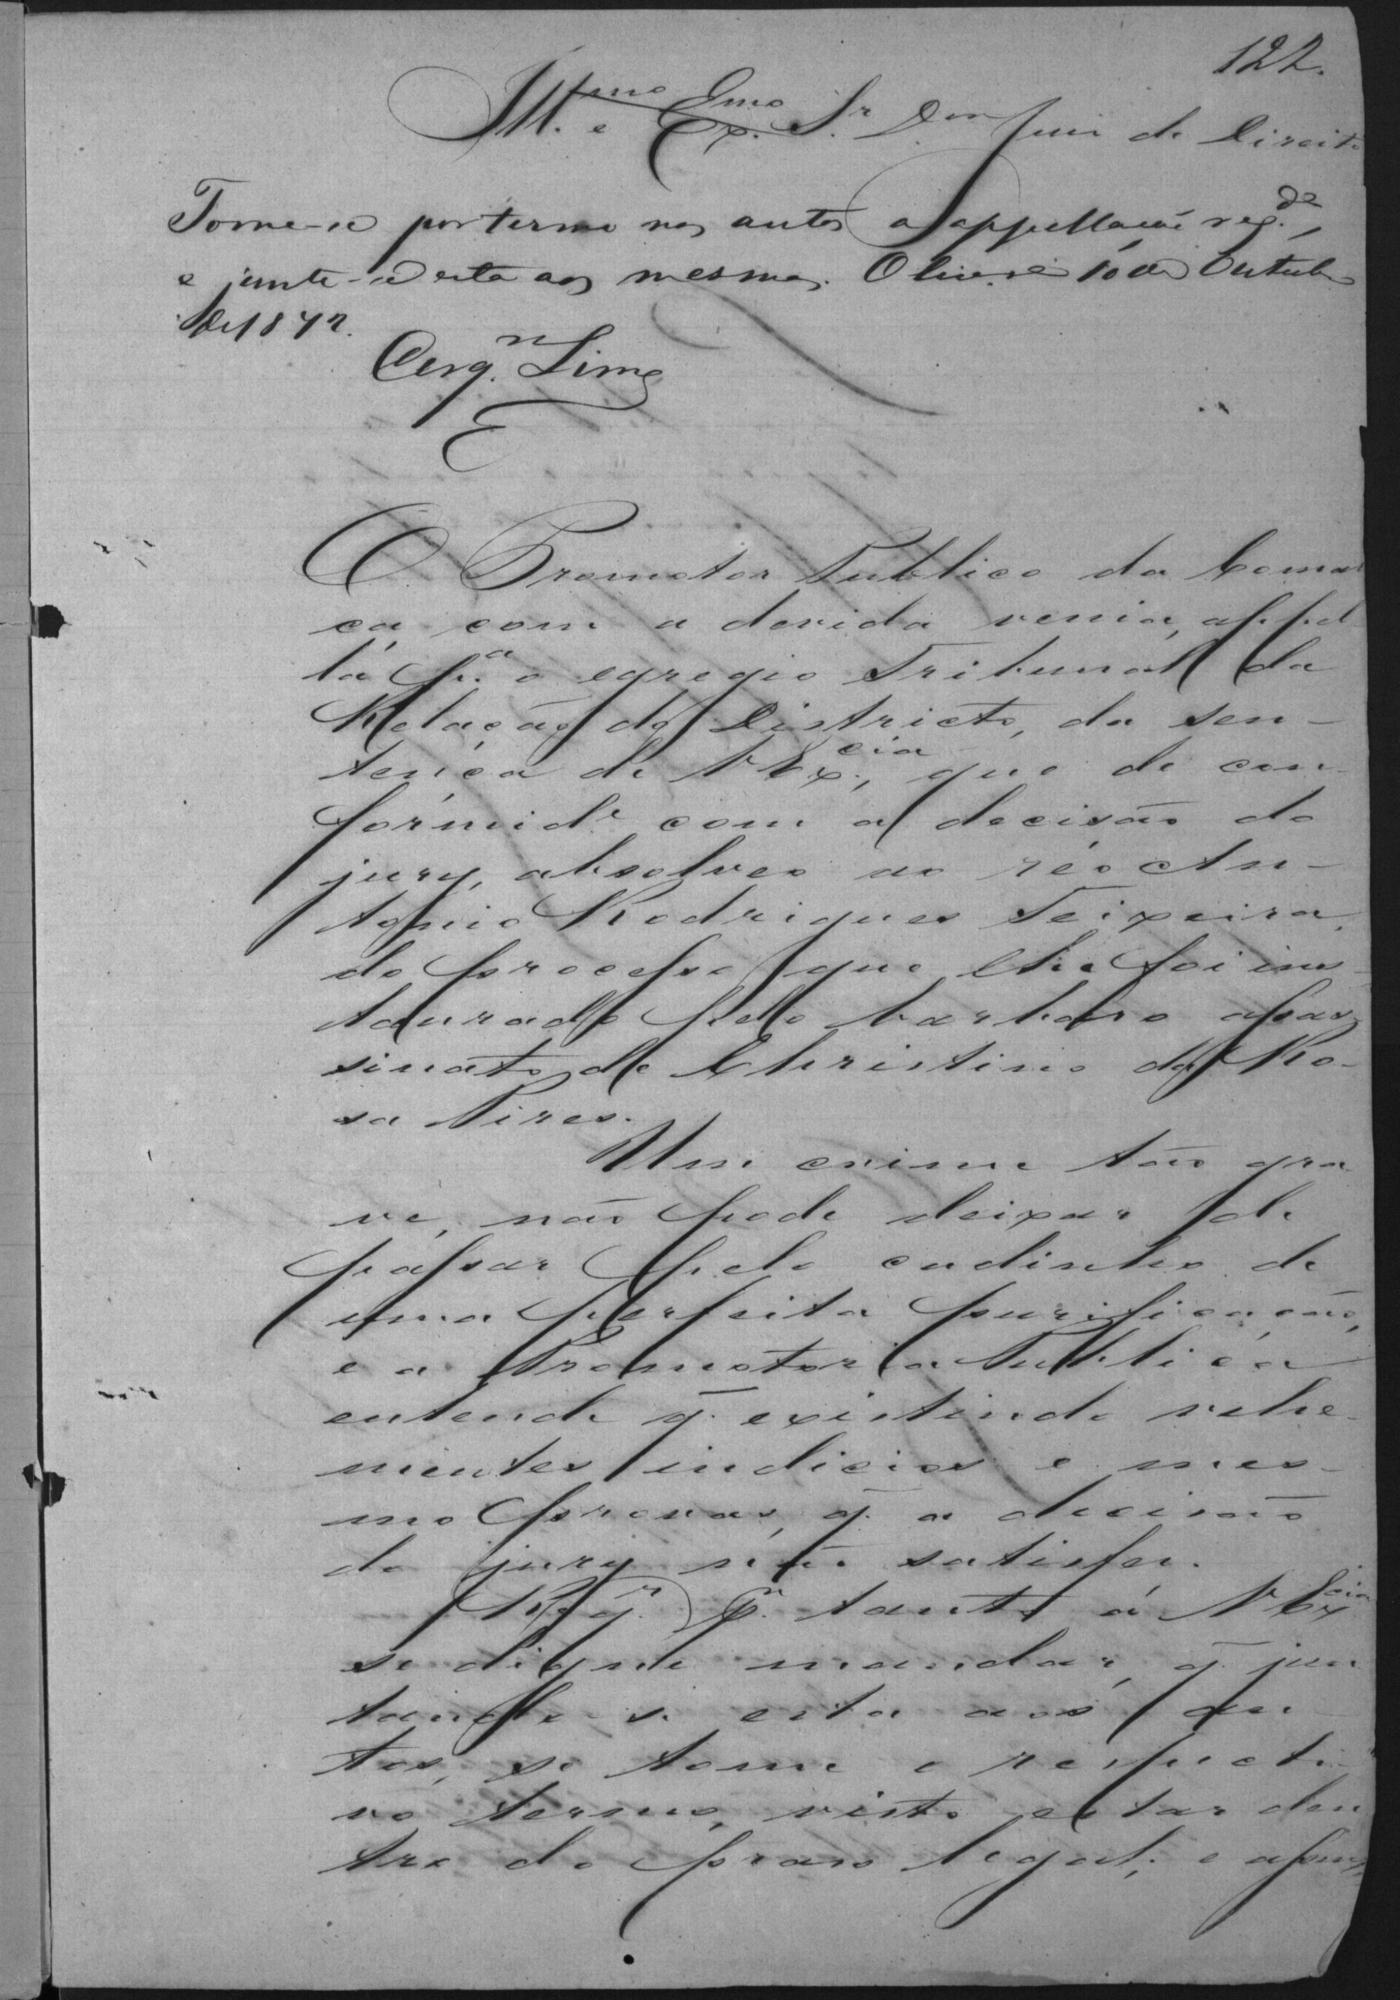 122.
Ill.mo e Ex.mo Sr. Dor Juiz de Direito
Tome-se por termo nos autos a appellação reg.da,
e junte-se esta aos mesmos. Oliveira 10 de Outubro
de 187
Cerq.ra Lima
O Promotor Publico da Comar
ca com a devida venia, appel
la p.a o egregio Tribunal da
Relação do Districto, da sen-
tença de V Ex.cia, que de con
formid.e com a decisão do
jury, absolveo ao réo An-
tonio Rodrigues Teixeira,
do processo que lhe foi ins
taurado pelo barbaro assas
sinato de Christino da Ro-
sa Pires.
Um crime tão gra
ve, não pode deixar de
passar pelo cadinho de
uma perfeita purificação,
e a Promotoria Publica
entende q. existindo vehe-
mentes indicios e mes-
mo provas, q. a decisão
do jury não satisfez.
Req.r p.r tanto á V Ex.cia
se digne mandar, q. jun
tando-se esta aos au
tos, se tome o respecti-
vo termo, visto estar den
tro do praso legal; e assim,